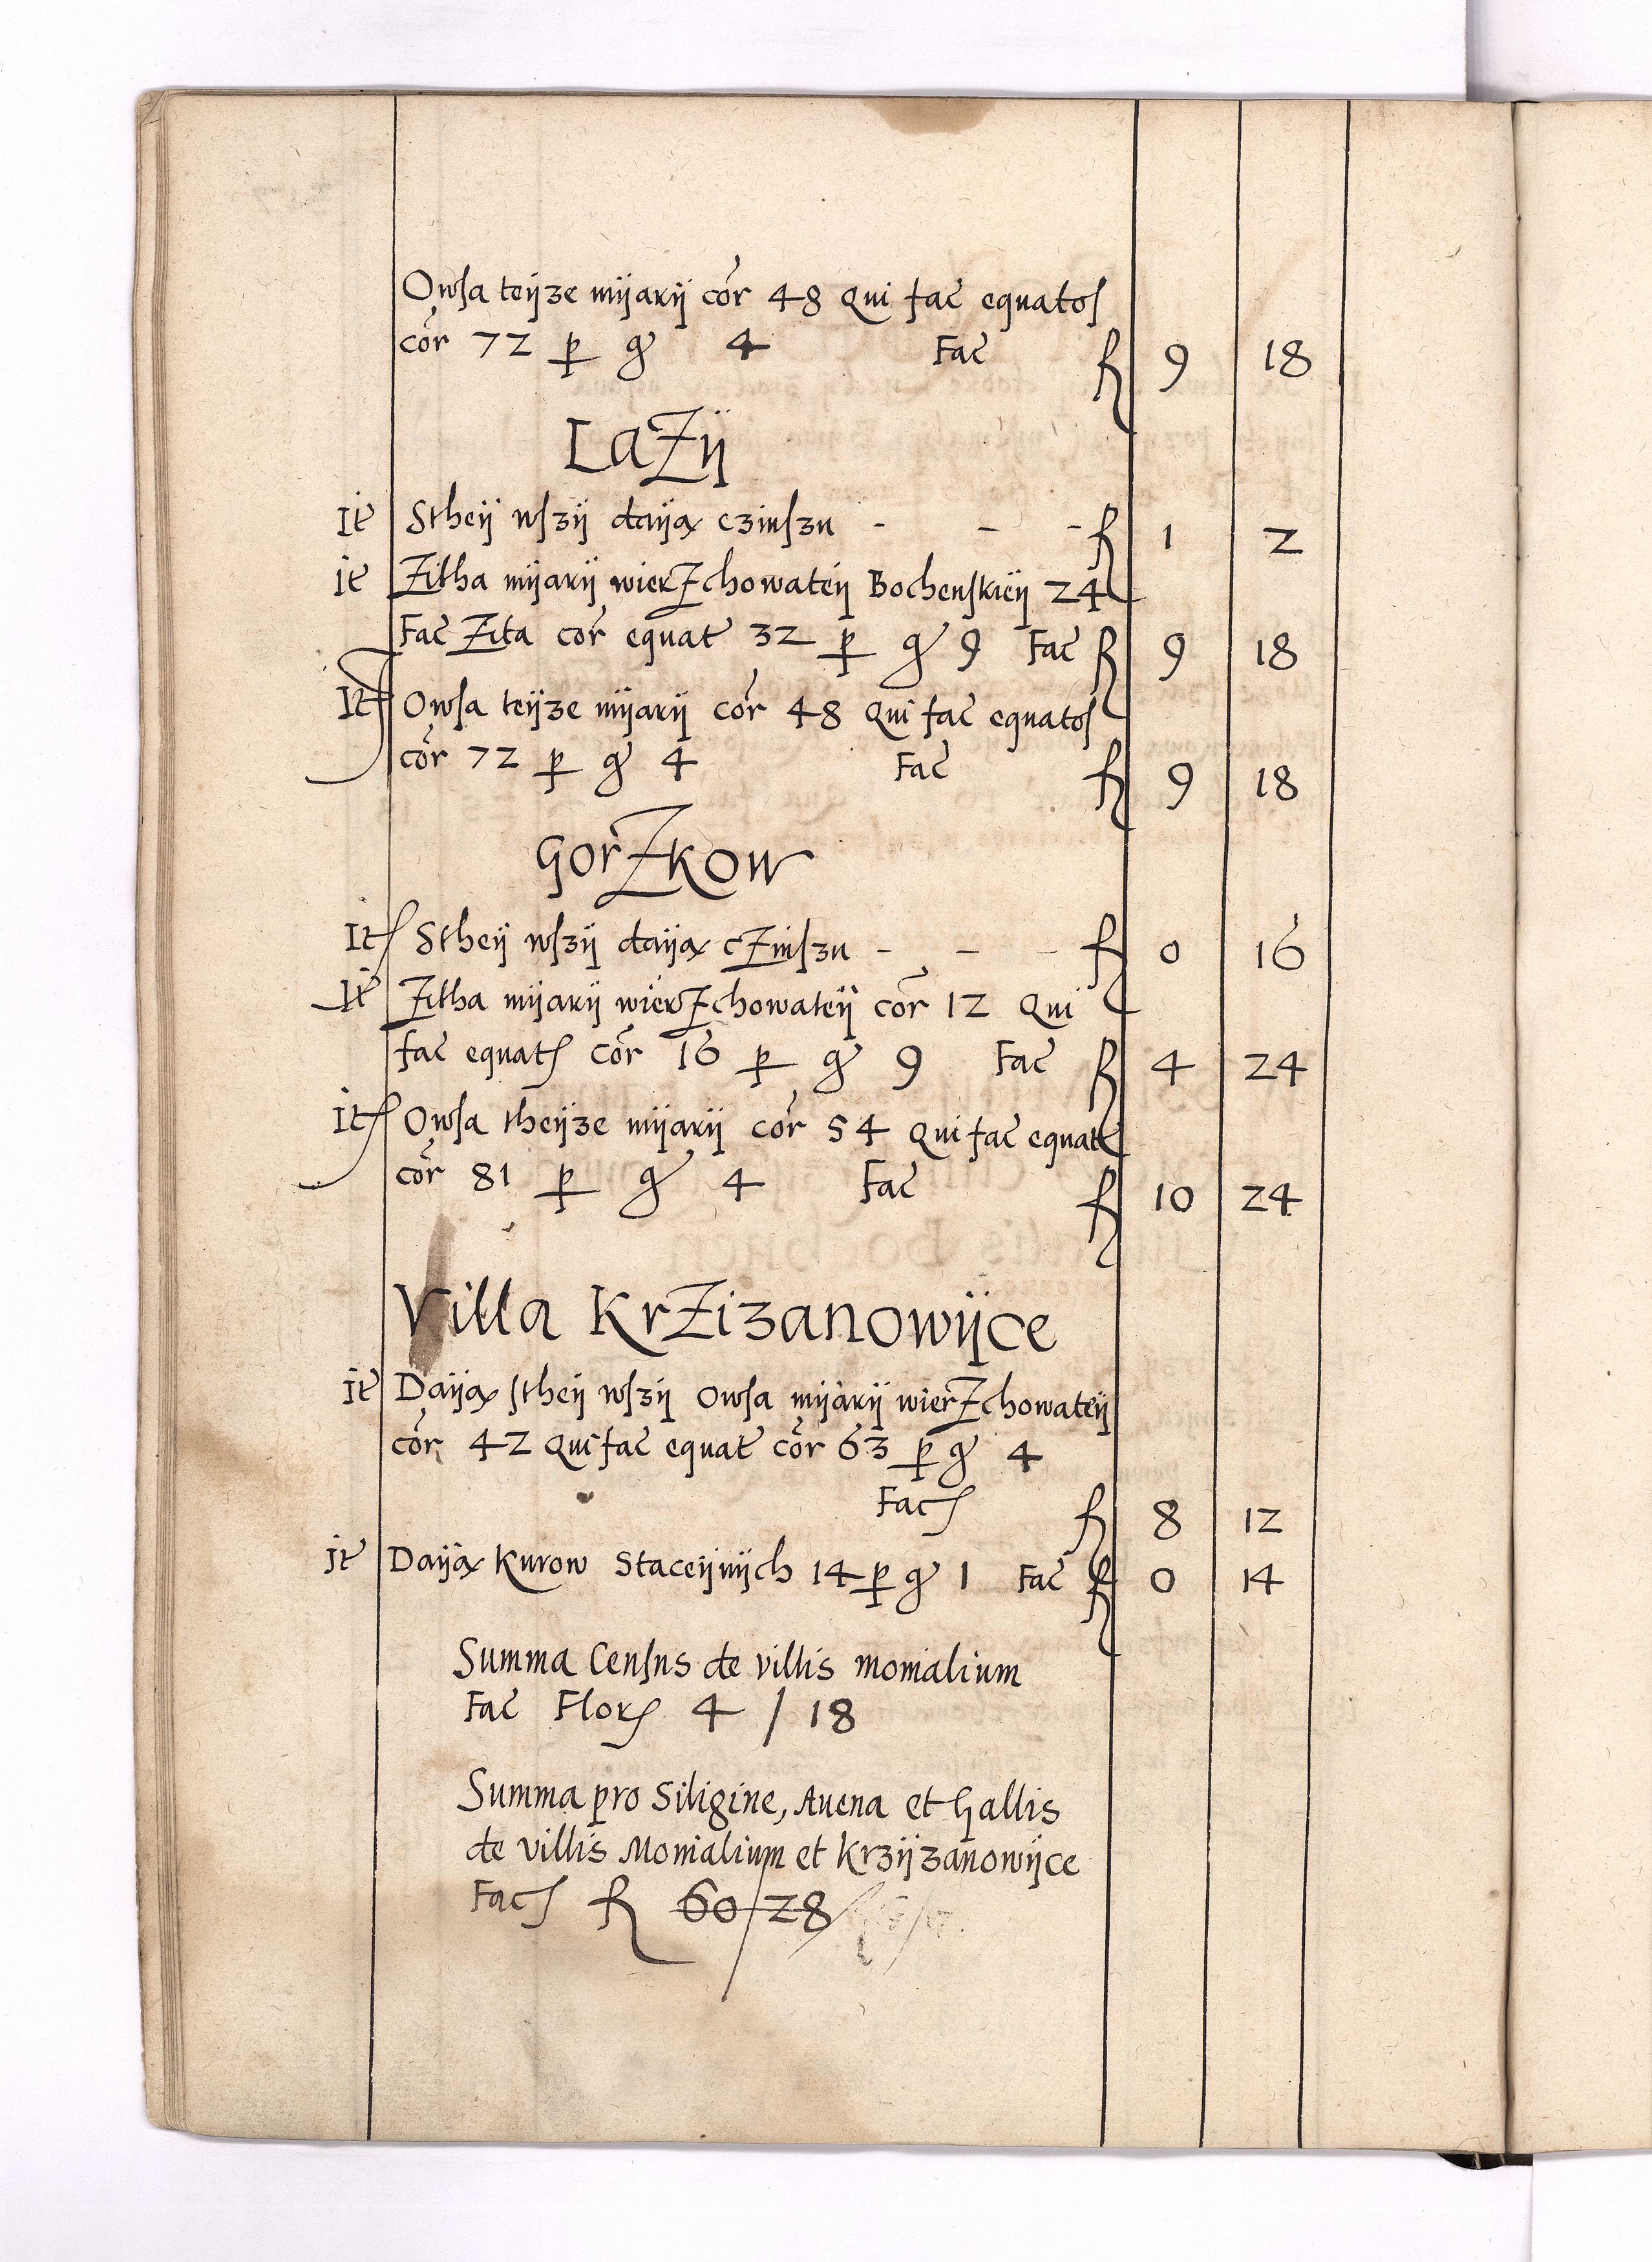 Owsa teÿze mÿarÿ cor̃ 48 Qui fac̃ equatoſ
cor̃ 72 ꝑ gͦ 4 Fac̃ fl 9 18
LaZÿ
It̃ Stheÿ wſzÿ daÿą czinſzu - - - fl 1 2
it̃ Zitha mÿarÿ wierZchowateÿ Bochenskieÿ 24
Fac̃ Zita cor̃ equat̃ 32 ꝑ gͦ 9 Fac̃ fl 9 18
It̃ Owsa teÿze mÿarÿ cor̃ 48 Qui fac̃ equatoſ
cor̃ 72 ꝑ gͦ 4 Fac̃ fl 9 18
GorZkow
It̃ Stheÿ wſzÿ daÿą cZinſzu - - - fl 0 16
It̃ Zitha mÿarÿ wierZchowateÿ cor̃ 12 Qui
fac̃ equat̃ cor̃ 16 ꝑ gͦ 9 Fac̃ fl 4 24
It̃ Owſa theÿze mÿarÿ cor̃ 54 Qui fac̃ equat̃
cor̃ 81 ꝑ gͦ 4 Fac̃ fl 10 24
Villa KrZizanowÿce
it̃ Daÿą ſtheÿ wſzÿ Owſa mÿarÿ wierZchowateÿ
cor̃ 42 Qui fac̃ equat̃ cor̃ 63 ꝑ gͦ 4
Fac̃ fl 8 12
it̃ Daÿą Kurow Staceÿnÿch 14 ꝑ gͦ 1 Fac̃ fl 0 14
Summa Censns de villis monialium
Fac̃ Flor̃ 4 / 18
Summa pro Siligine, Auena et Gallis
de villis Monialium et Krzÿzanowÿce
Fac̃ fl 60/28